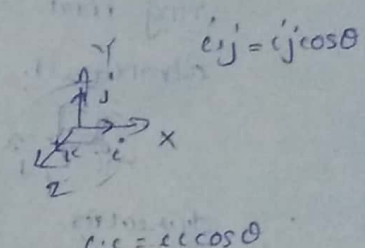 i·j = ij cosθ
Y
j
i
X
K
Z
i·i = ii cosθ